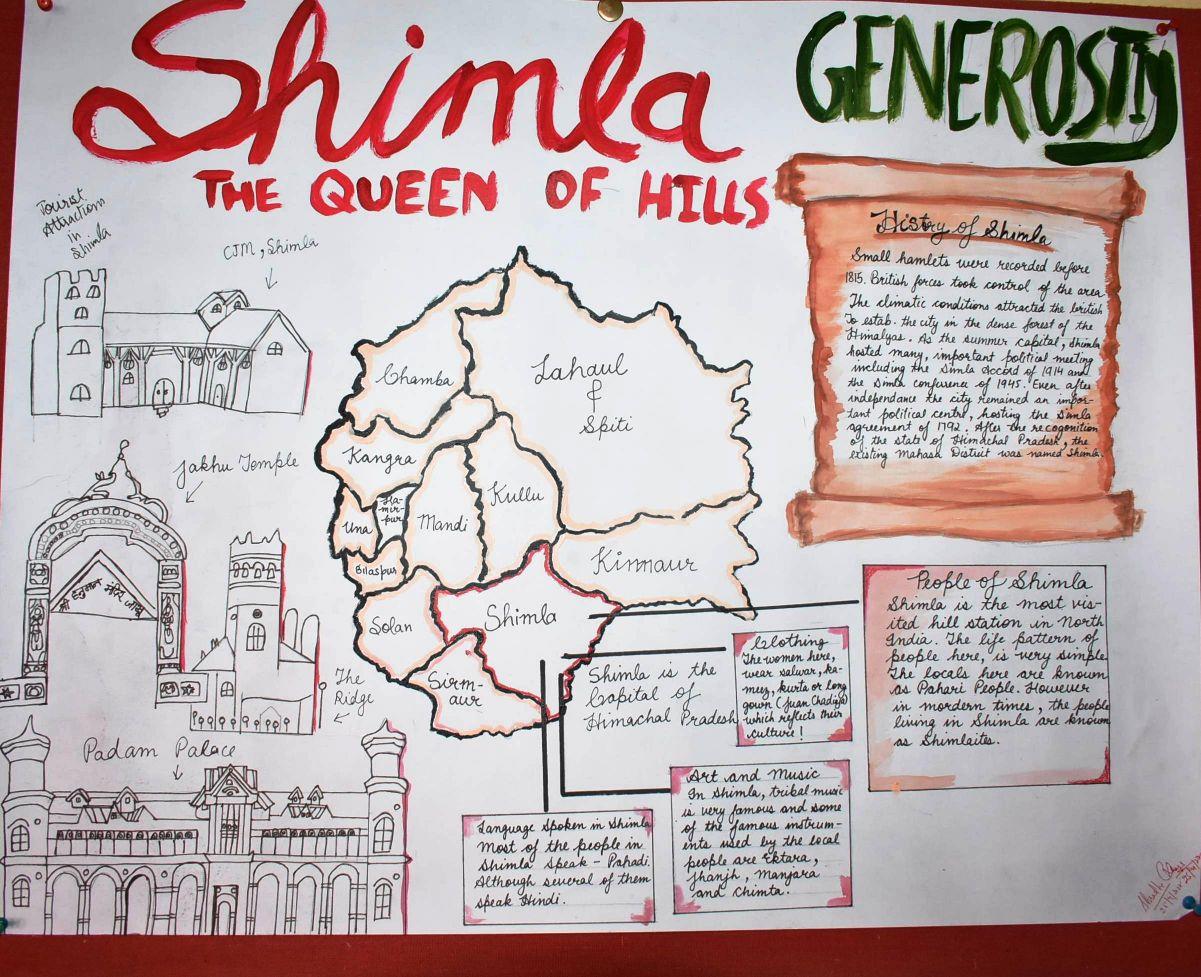 Shimla
THE QUEEN OF HILLS
GENEROSITY
Tourist
Attractions
in
Shimla
CJM, Shimla
Jakhu Temple
श्री हनुमान मंदिर जाखू
The
Ridge
Padam Palace
Chamba
Lahaul
&
Spiti
Kangra
Una
Ha-
mir-
pur
Mandi
Kullu
Bilaspur
Kinnaur
Solan
Shimla
Sirm-
aur
Shimla is the
Capital of
Himachal Pradesh
Histry of Shimla
Small hamlets were recorded before
1815. British forces took control of the area
The climatic conditions attracted the british
To estab. the city in the dense forest of the
Himalyas. As the summer capital, Shimla
hosted many, important political meeting
including the Simla Accord of 1914 and
the Simla confurence of 1945. Even after
independance the city remained an impor-
tant political centre, hosting the simla
agreement of 1792. After the recogonition
of the state of Himachal Pradesh, the
existing Mahasu District was named Shimla.
People of Shimla
Shimla is the most vis-
ited hill station in North
India. The life pattern of
people here, is very simple
The locals here are known
as Pahari People. However
in mordern times, the people
living in Shimla are known
as Shimlaites.
Clothing
The women here,
wear salwar, ka-
meez, kurta or Long
gown (Juan Chadiya)
which reflects their
culture!
Art and Music
In Shimla, tribal music
is very famous and some
of the famous instrum-
ents used by the local
people are Ektara,
Jhanjh, Manjara
and chimta.
Language Spoken in Shimla
Most of the people in
Shimla Speak - Pahadi.
Although several of them
speak Hindi.